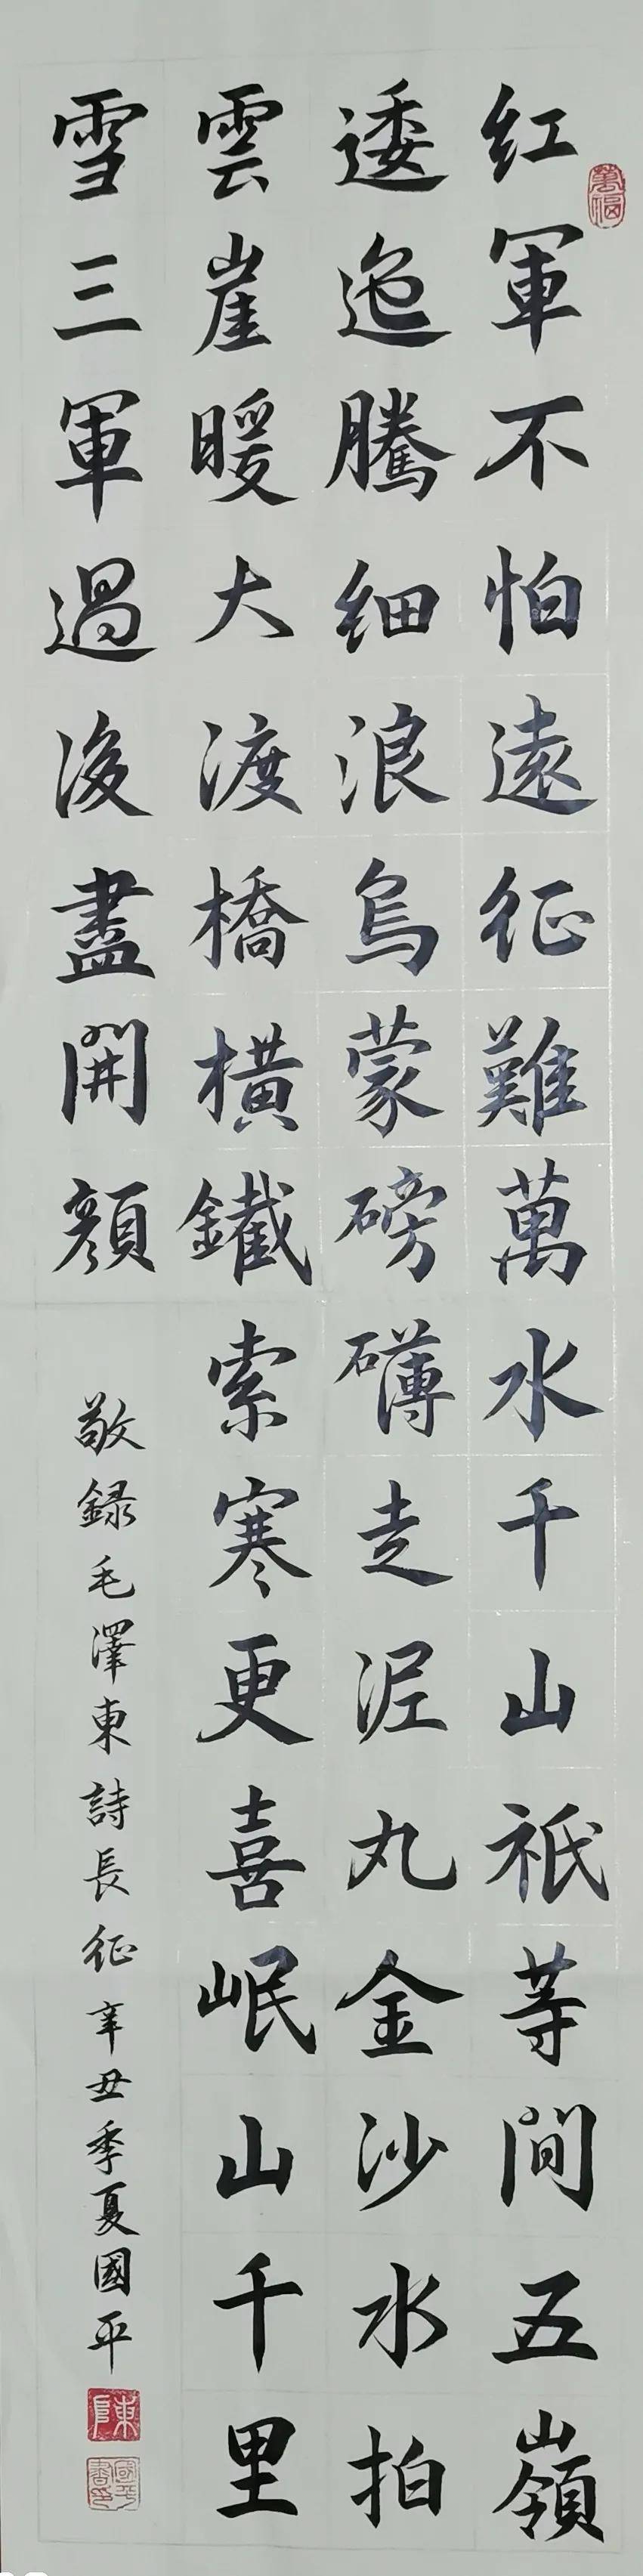 萬福
红軍不怕遠征難萬水千山祇等間五嶺
逶迤騰细浪烏蒙磅礴走泥丸金沙水拍
雲崖暖大渡橋橫鐵索寒更喜岷山千里
雪三軍過後盡開顏
敬録毛澤東詩長征辛丑季夏國平
陳
國平書印